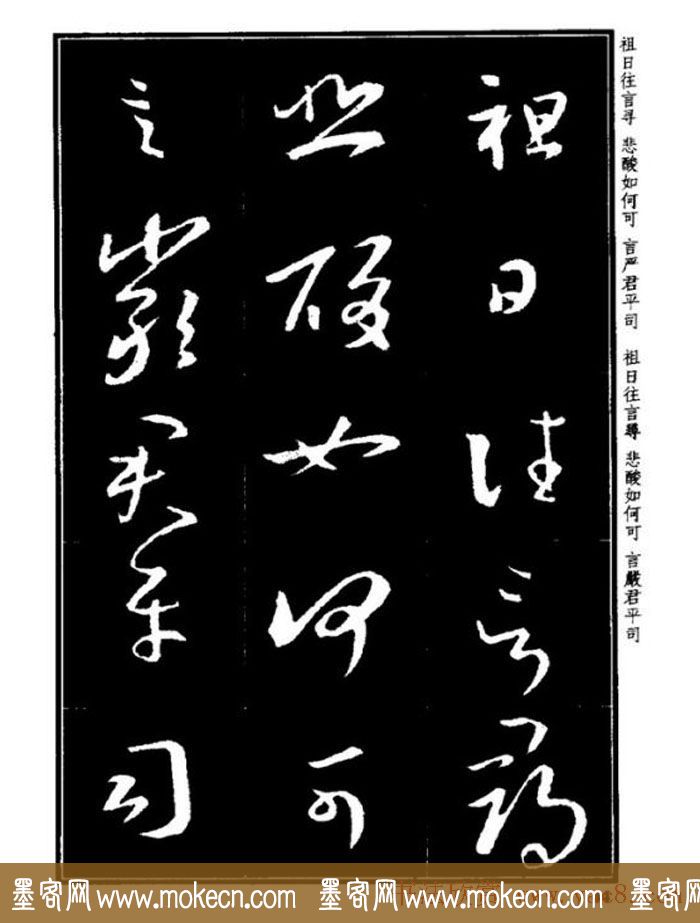 祖日往言寻 悲酸如何可 言严君平司 祖日往言尋 悲酸如何可 言嚴君平司
祖日往言尋
悲酸如何可
言嚴君平司
墨客网 www.mokecn.com 墨客网 www.mokecn.com 墨客网